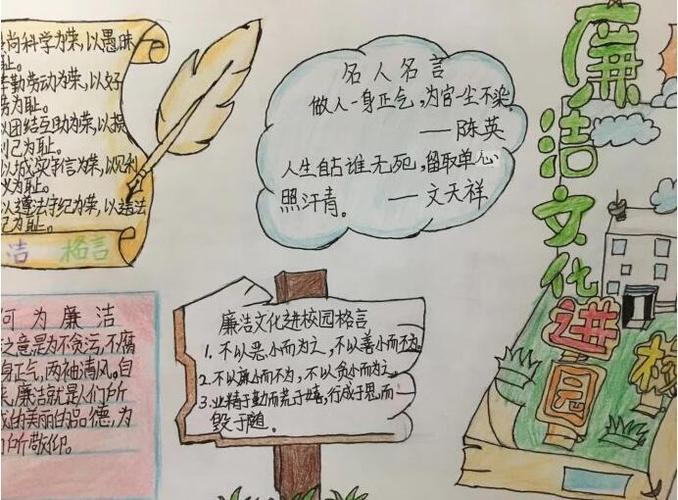 尚科学为荣,以愚昧
耻。
辛勤劳动为荣,以好
劳为耻。
以团结互助为荣,以损
利己为耻。
以诚实守信为荣,以见利
义为耻。
以遵法守纪为荣,以违法
纪为耻。
洁 格言
名人名言
做人一身正气,为官一尘不染
——陈英
人生自古谁无死,留取单心
照汗青。——文天祥
廉洁文化进校园
何为廉洁
之意是为不贪污,不腐
身正气,两袖清风。自
来,廉洁就是人们所
成的美丽的品德,为
们所敬仰。
廉洁文化进校园格言
1.不以恶小而为之,不以善小而不为。
2.不以廉小而不为,不以贪小而为之。
3.业精于勤而荒于嬉,行成于思而
毁于随。